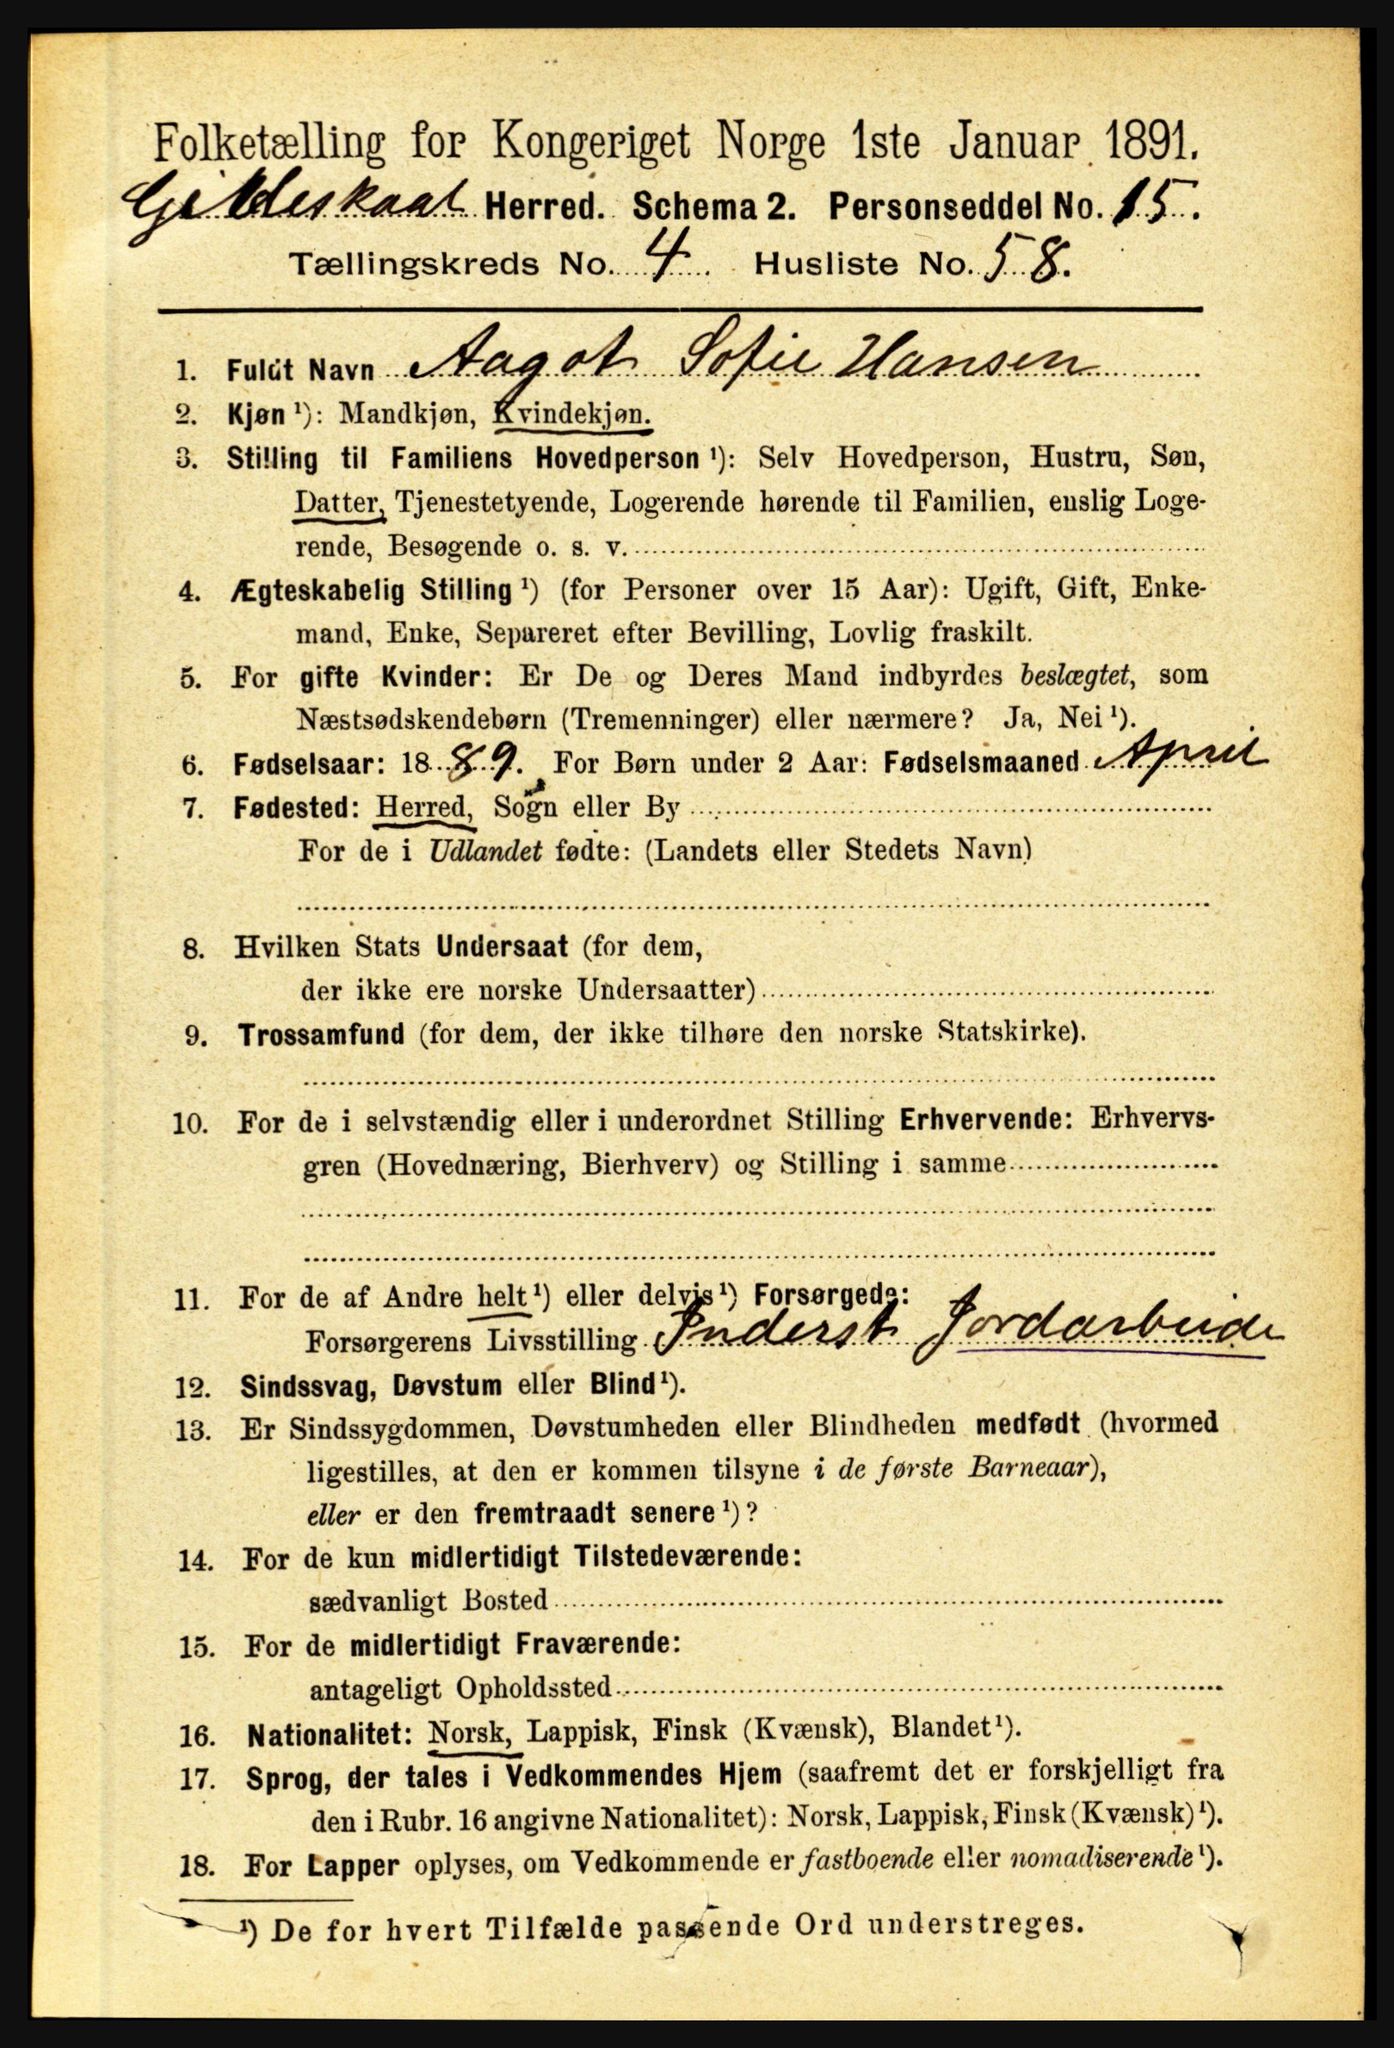 Folketælling for Kongeriget Norge 1ste Januar 1891.
Gildeskaal Herred. Schema 2. Personseddel No. 15.
Tællingskreds No. 4 Husliste No. 58.
1. Fuldt Navn Aagot Sofie Hansen
2. Kjøn ¹): Mandkjøn, Kvindekjøn.
3. Stilling til Familiens Hovedperson ¹): Selv Hovedperson, Hustru, Søn,
Datter, Tjenestetyende, Logerende hørende til Familien, enslig Loge-
rende, Besøgende o. s. v.
4. Ægteskabelig Stilling ¹) (for Personer over 15 Aar): Ugift, Gift, Enke-
mand, Enke, Separeret efter Bevilling, Lovlig fraskilt.
5. For gifte Kvinder: Er De og Deres Mand indbyrdes beslægtet, som
Næstsødskendebørn (Tremenninger) eller nærmere? Ja, Nei ¹).
6. Fødselsaar: 1889. For Børn under 2 Aar: Fødselsmaaned April
7. Fødested: Herred, Sogn eller By
For de i Udlandet fødte: (Landets eller Stedets Navn)
8. Hvilken Stats Undersaat (for dem,
der ikke ere norske Undersaatter)
9. Trossamfund (for dem, der ikke tilhøre den norske Statskirke).
10. For de i selvstændig eller i underordnet Stilling Erhvervende: Erhvervs-
gren (Hovednæring, Bierhverv) og Stilling i samme
11. For de af Andre helt ¹) eller delvis ¹) Forsørgede:
Forsørgerens Livsstilling Inderst Jordarbeide
12. Sindssvag, Døvstum eller Blind ¹).
13. Er Sindssygdommen, Døvstumheden eller Blindheden medfødt (hvormed
ligestilles, at den er kommen tilsyne i de første Barneaar),
eller er den fremtraadt senere ¹)?
14. For de kun midlertidigt Tilstedeværende:
sædvanligt Bosted
15. For de midlertidigt Fraværende:
antageligt Opholdssted
16. Nationalitet: Norsk, Lappisk, Finsk (Kvænsk), Blandet ¹).
17. Sprog, der tales i Vedkommendes Hjem (saafremt det er forskjelligt fra
den i Rubr. 16 angivne Nationalitet): Norsk, Lappisk, Finsk (Kvænsk) ¹).
18. For Lapper oplyses, om Vedkommende er fastboende eller nomadiserende ¹).
¹) De for hvert Tilfælde passende Ord understreges.